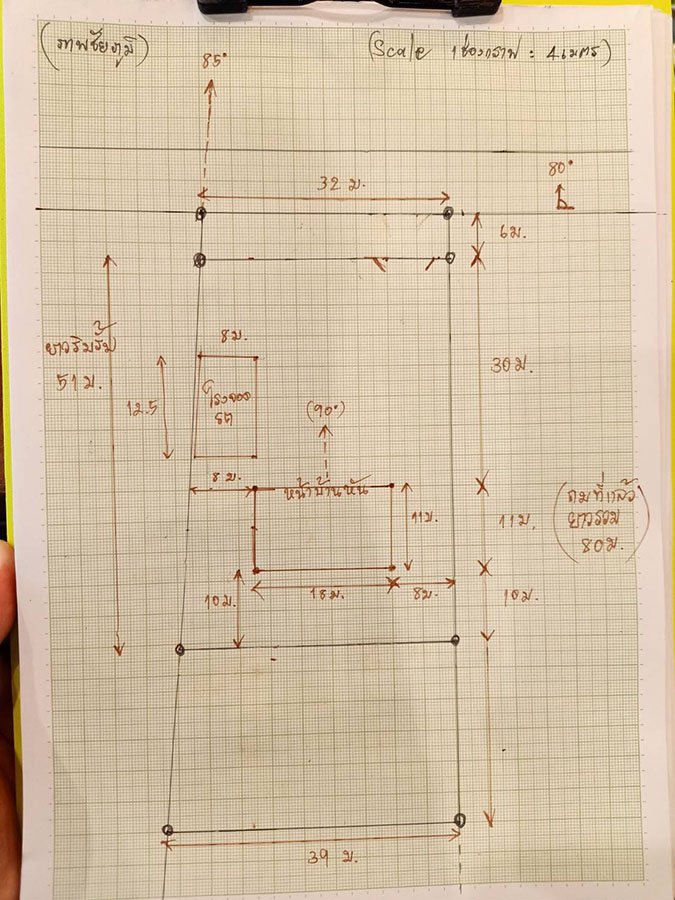 (ภาพชัยภูมิ)
(Scale 1ช่องกราฟ : 4เมตร)
85°
80°
32 ม.
6ม.
8ม.
ยาวริมรั้ว
51 ม.
30ม.
12.5
โรงจอด
รถ
(90°)
8 ม.
หน้าบ้านหัน
11ม.
11ม.
(ถมที่แล้ว
ยาวรวม
80ม.)
10ม.
18ม.
8ม.
10ม.
39 ม.